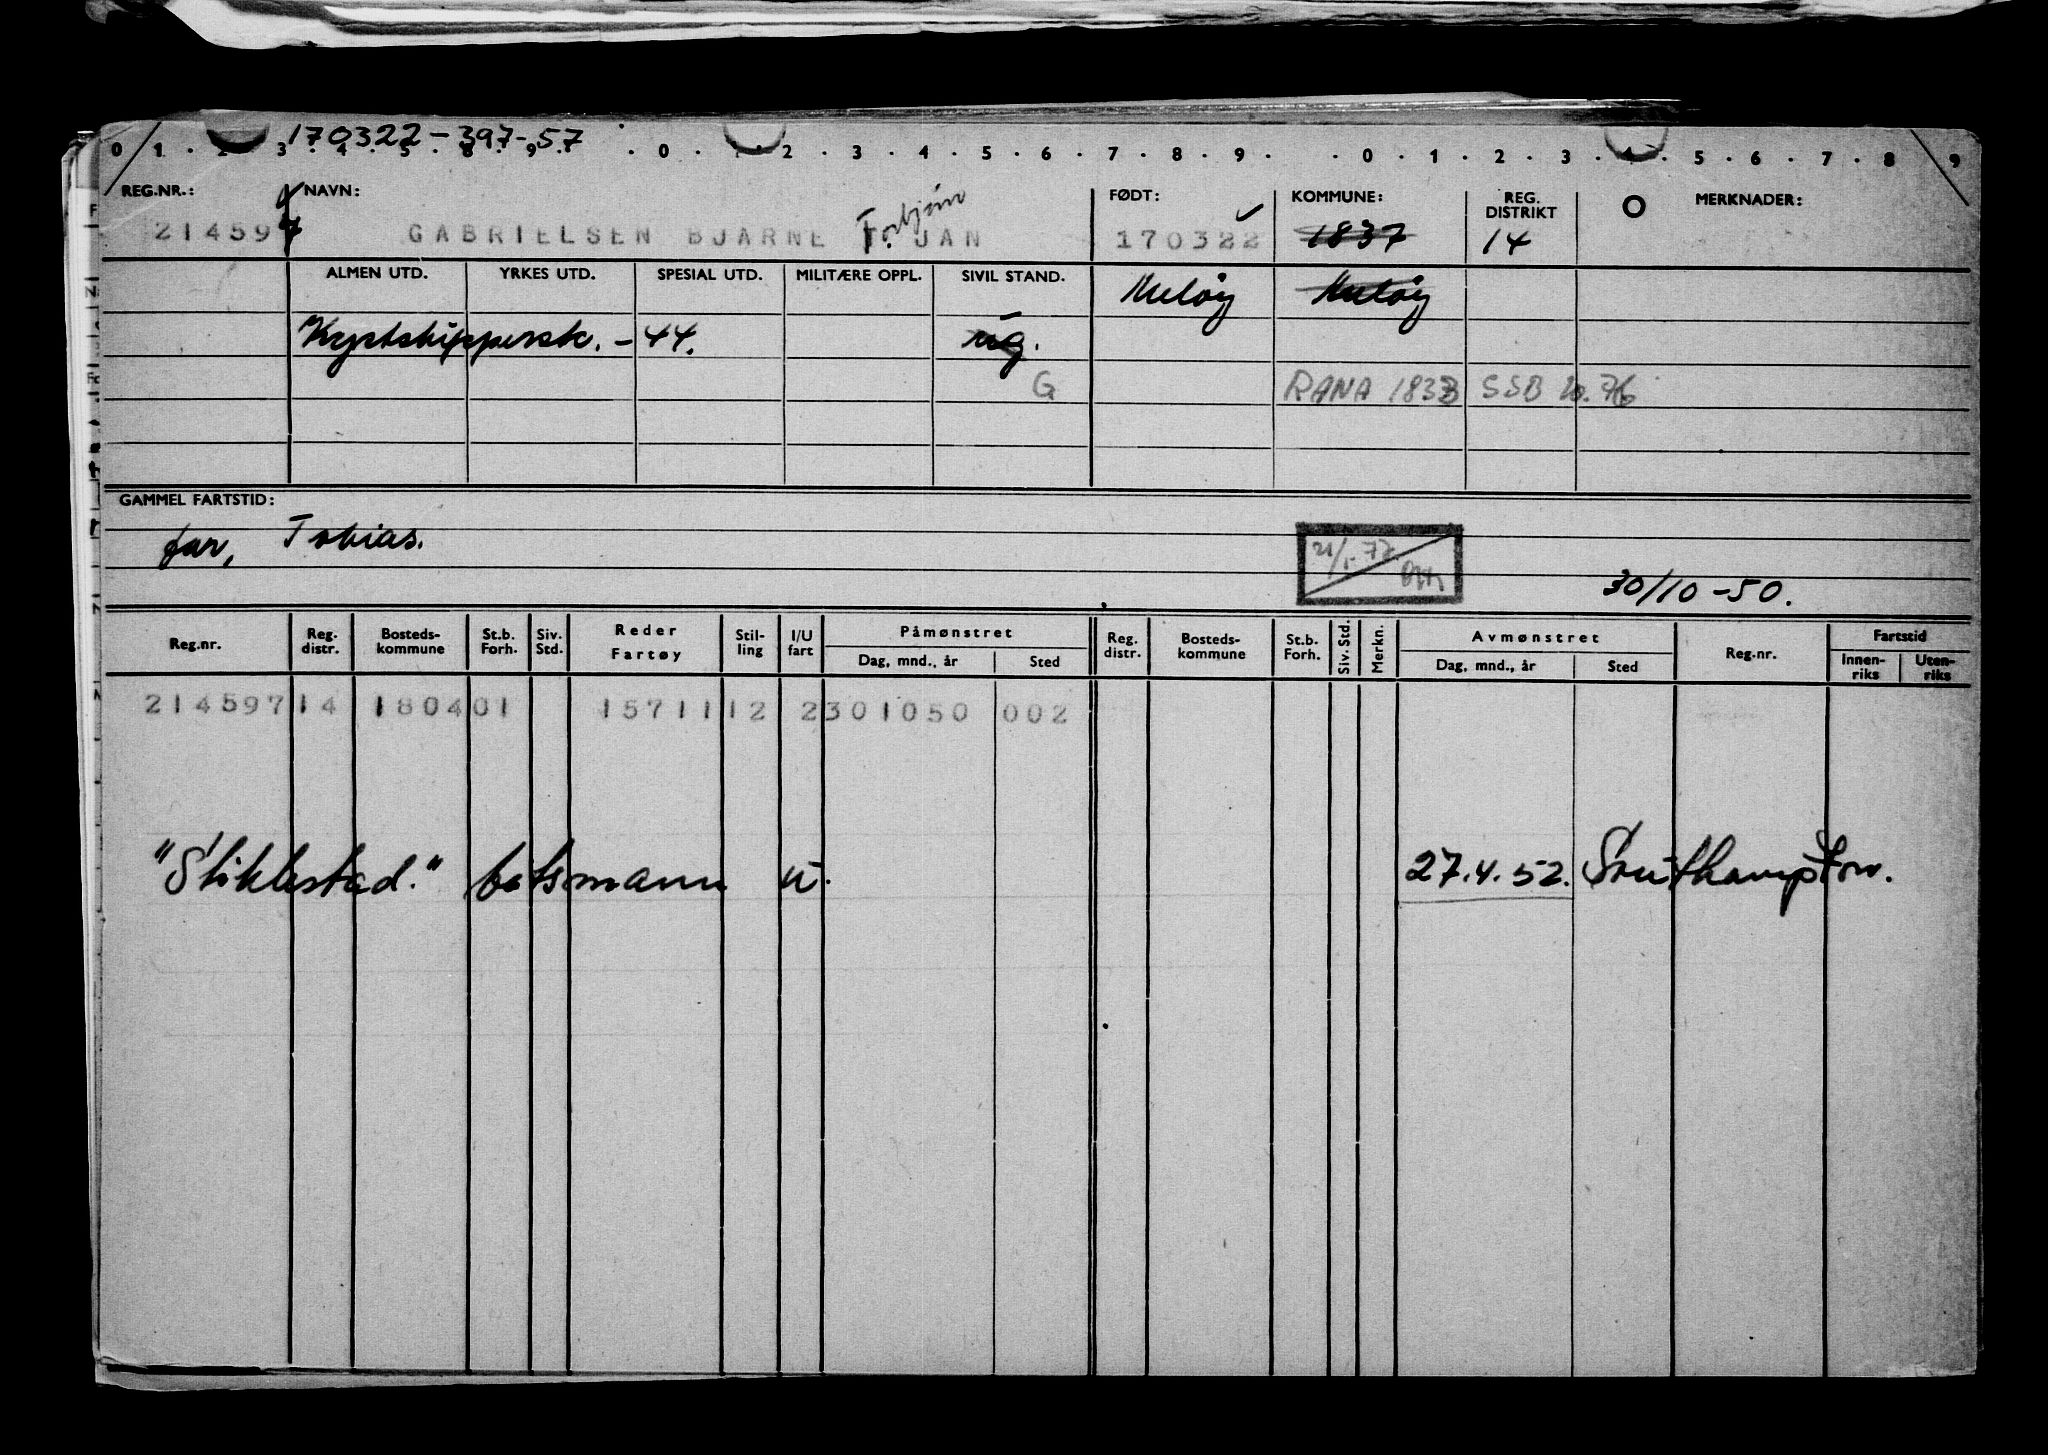 170322-397-57
0 1 . 2 . 3 . 4 . 5 . 8 . 9 . . 0 . 1 . 2 . 3 . 4 . 5 . 6 . 7 . 8 . 9 . . 0 . 1 . 2 . 3 . 4 . 5 . 6 . 7 . 8 . 9
REG.NR.: NAVN: FØDT: KOMMUNE: REG. DISTRIKT MERKNADER:
Torbjörn
214597 GABRIELSEN BJARNE T. JAN 170322 1837 14
ALMEN UTD. YRKES UTD. SPESIAL UTD. MILITÆRE OPPL. SIVIL STAND. Meløy Meløy
Kystskippersk. - 44. ug.
G RANA 1833 SSB 10.76
GAMMEL FARTSTID:
far, Tobias.
30/10-50.
Reg.nr. Reg. distr. Bosteds- kommune St.b. Forh. Siv. Std. Reder Fartøy Stil- ling I/U fart Påmønstret Dag, mnd., år Sted Reg. distr. Bosteds- kommune St.b. Forh. Siv. Std. Merkn. Avmønstret Dag, mnd., år Sted Reg.nr. Fartstid Innen- riks Uten- riks
214597 14 1804 01 15711 12 2 301050 002
"Stiklestad." båtsmann u. 27.4.52. Southampton.